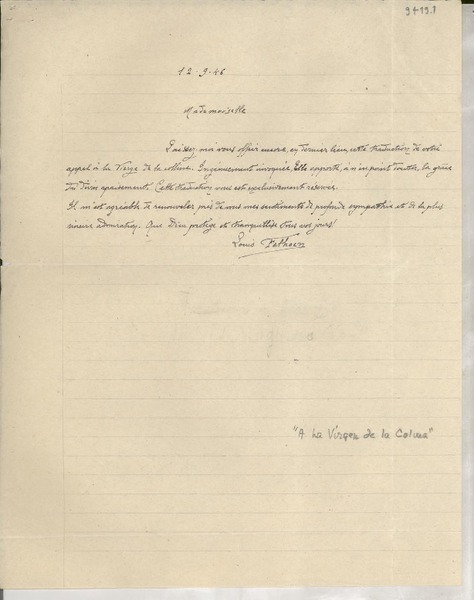 12-9-46
Mademoiselle
Laissez-moi vous offrir encore, en dernier lieu, cette traduction de votre
appel à la Vierge de la colline. Ingénument invoquée, Elle apporte, à n'importe , la grâce
du apaisement. Cette traduction vous est exclusivement réservée.
Il m'est agréable de renouveler près de vous mes sentiments de profonde sympathie et de la plus
sincère admiration. Que Dieu protège et tranquillise tous vos jours!
Louis
"A La Virgen de la Colina"